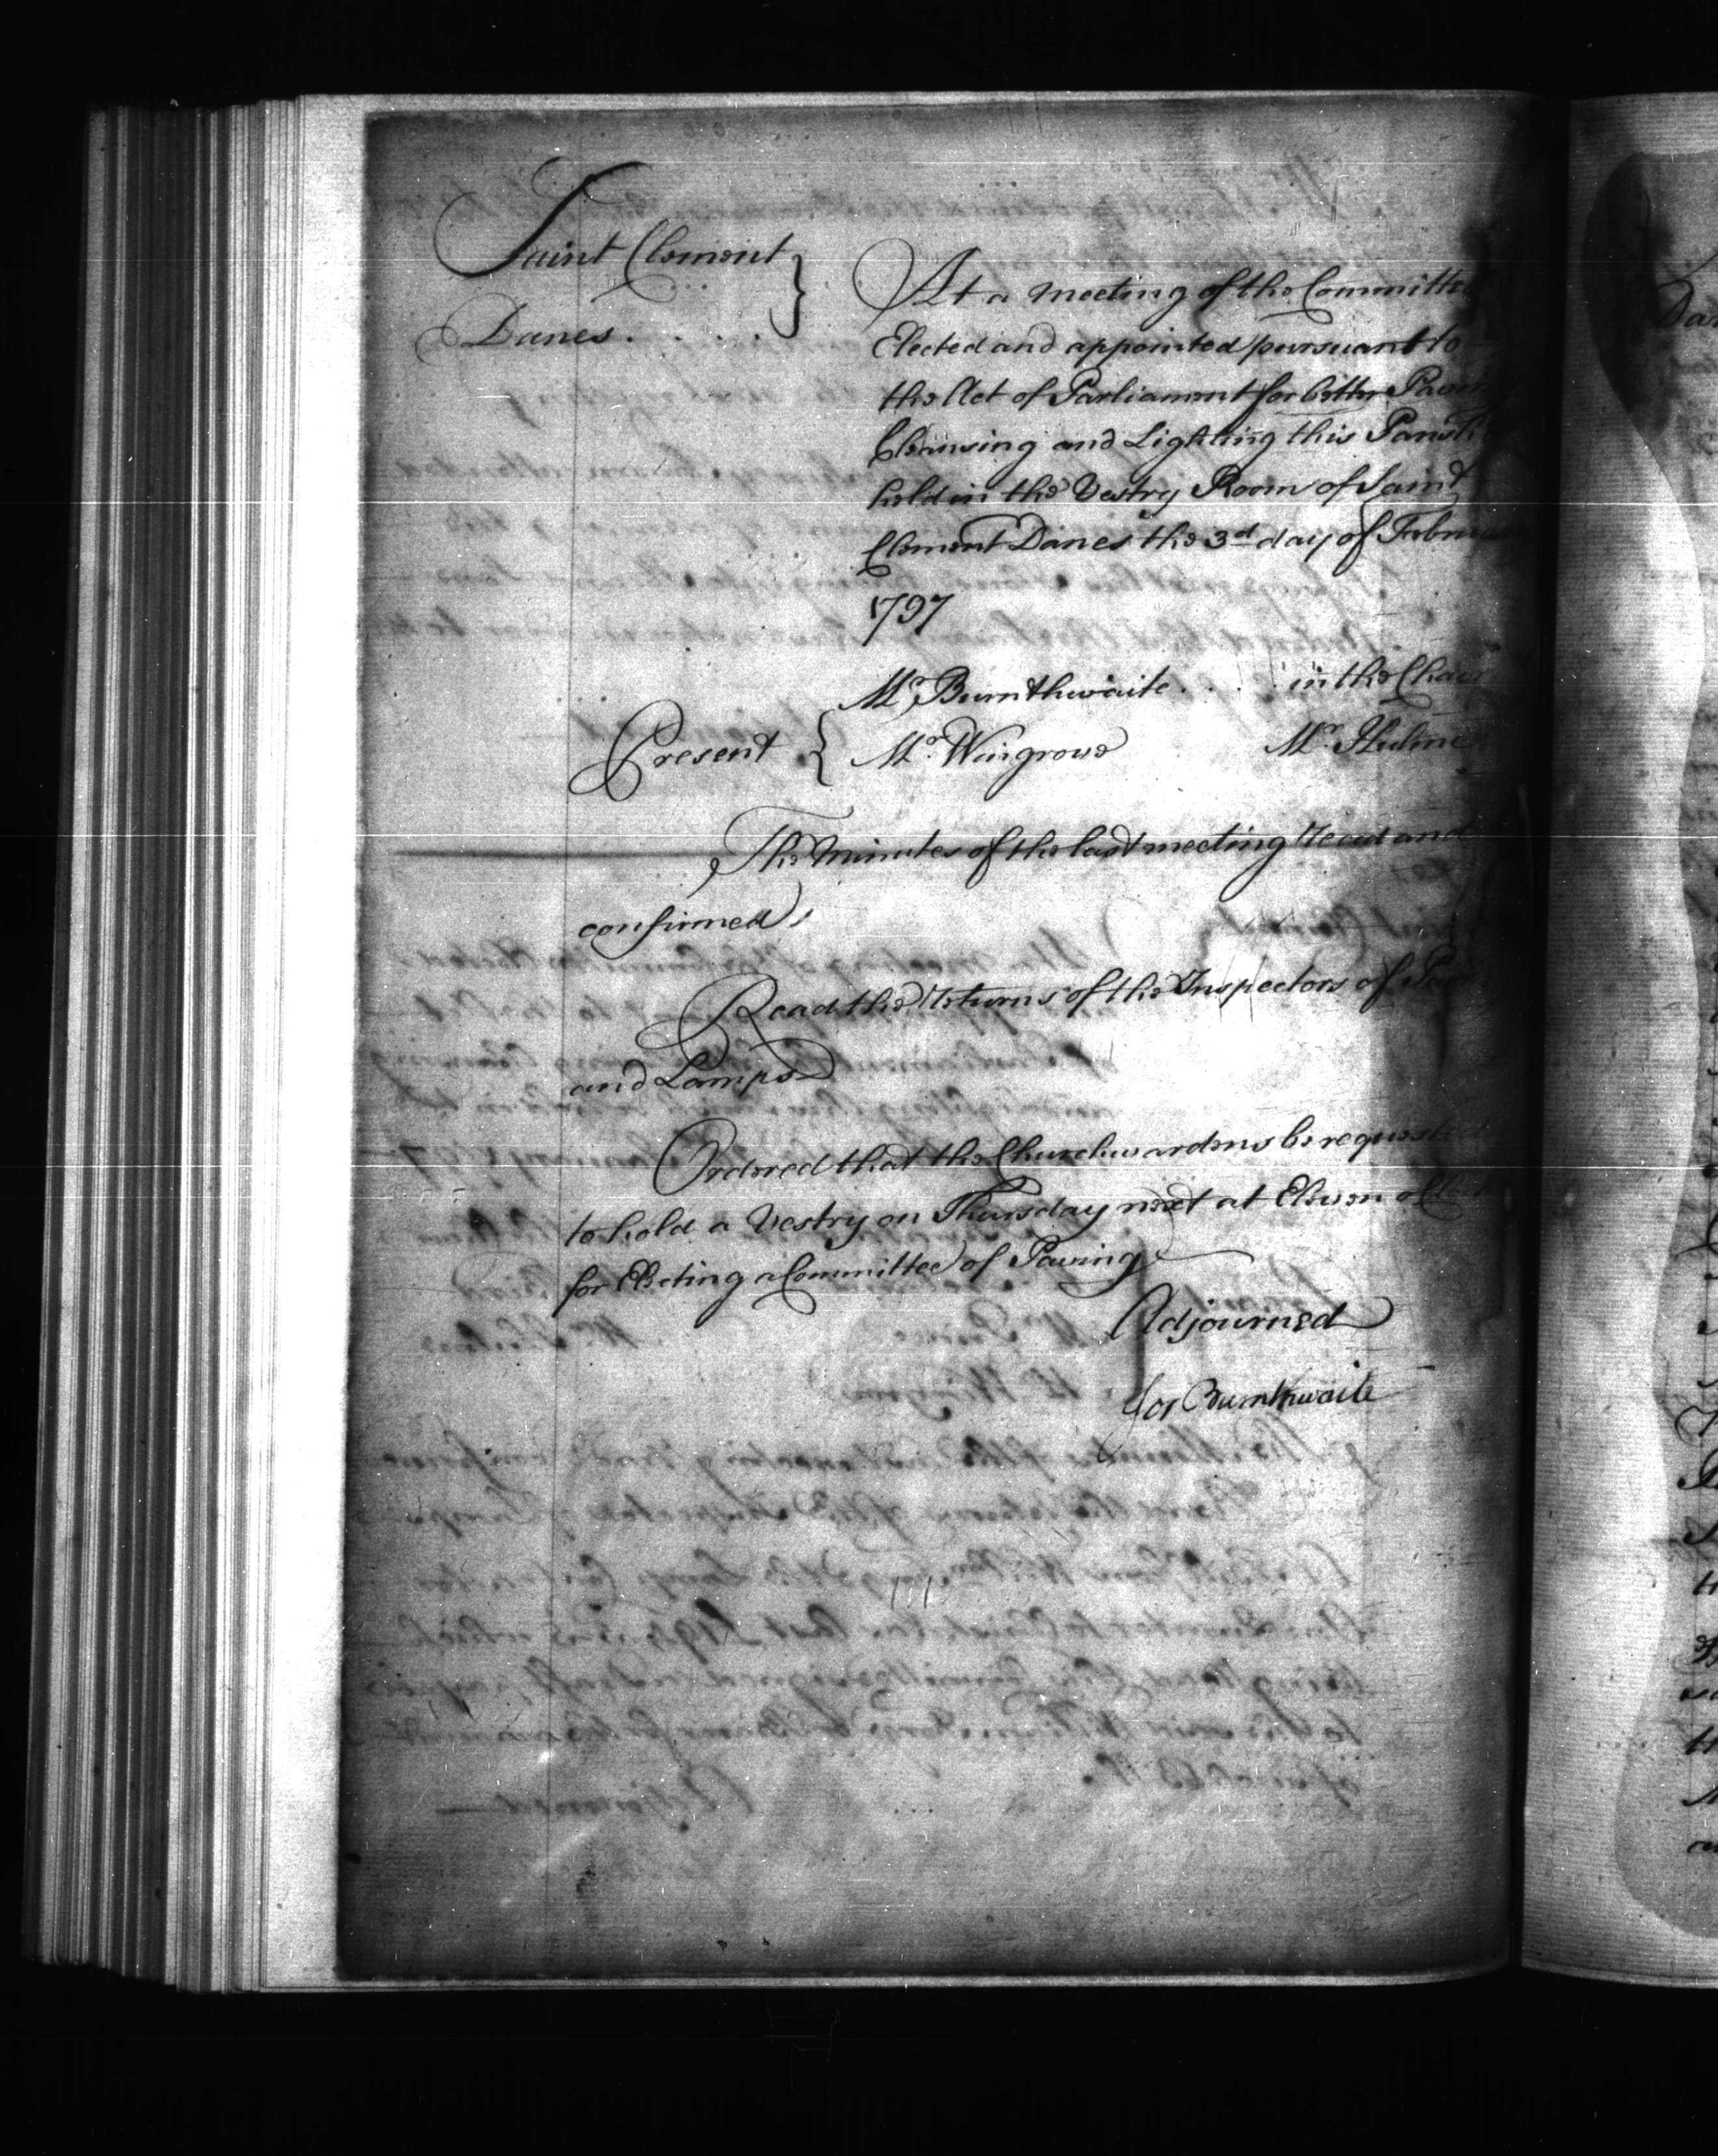 Saint Clement
Danes
At a Meeting of the Committee
Elected and appointed pursuant to
the Act of Parliament for better Paving
Cleansing and Lighting this Parish
held in the Vestry Room of Saint
Clement Danes the 3d day of Februa
1797
Mr Burnthwaite in the Chair
Present Mr Wingrove Mr Hulme
The Minutes of the last meeting read and
confirmed
Read the Returns of the Inspectors of
and Lamps
Ordered that the Churchwardens be requested
to hold a Vestry on Thursday next at Eleven oClock
for Electing a Committee of Paving
Adjourned
Jos Burnthwaite